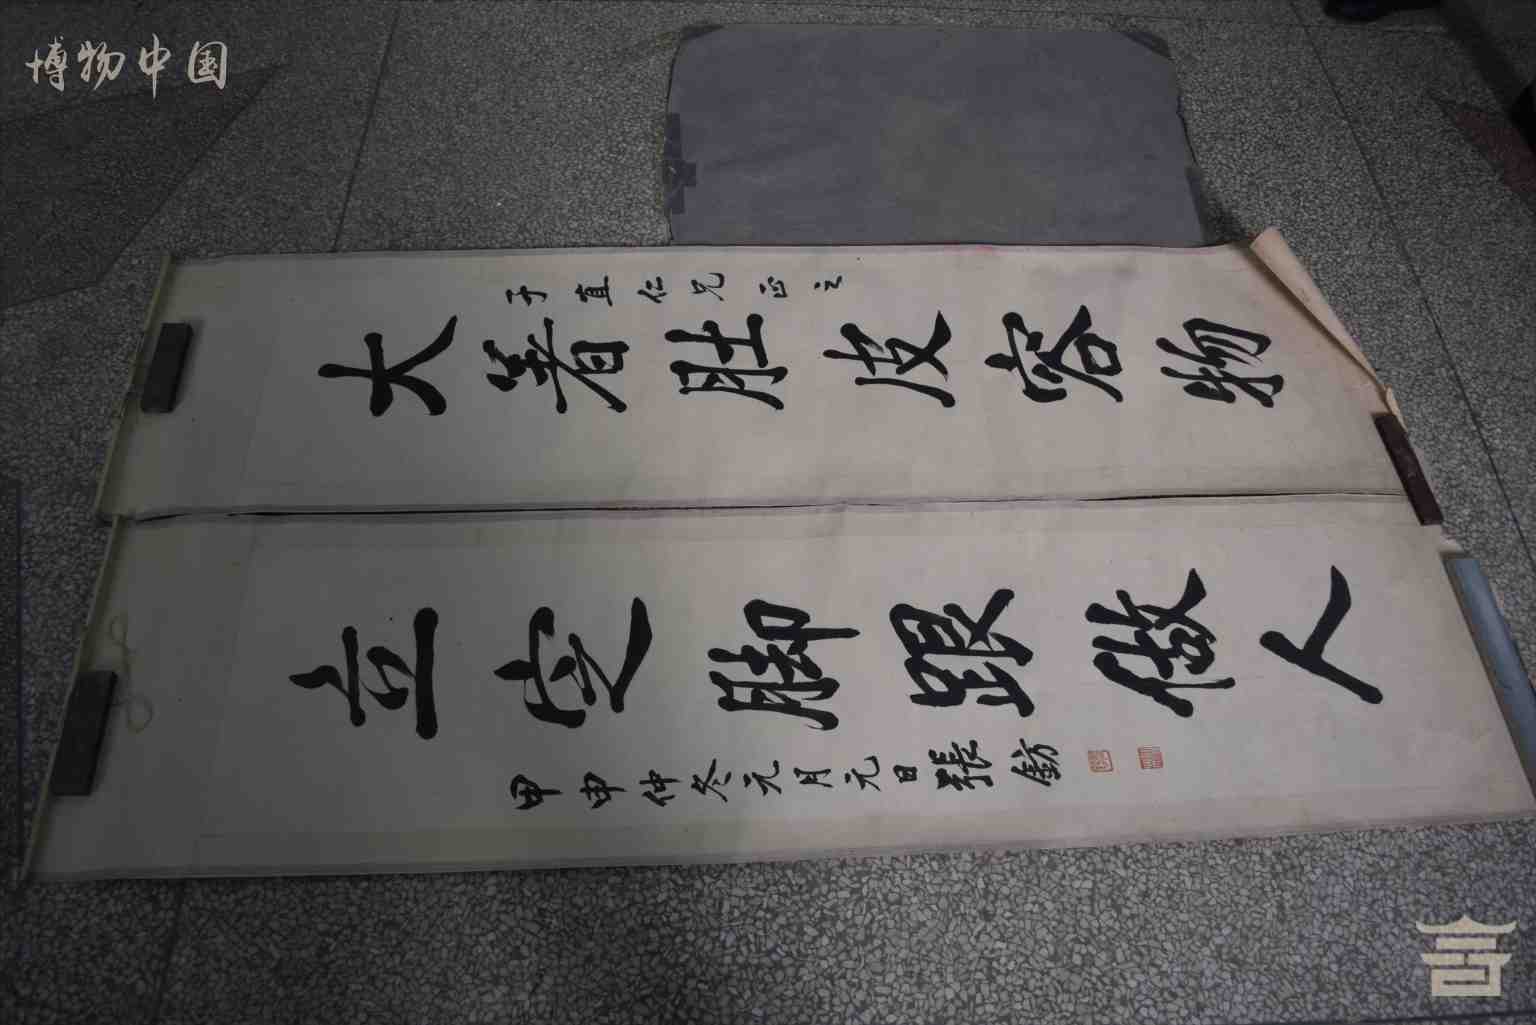 博物中国
子直仁兄正之
大著肚皮容物
立定脚跟做人
甲申仲冬元月元日張鈁